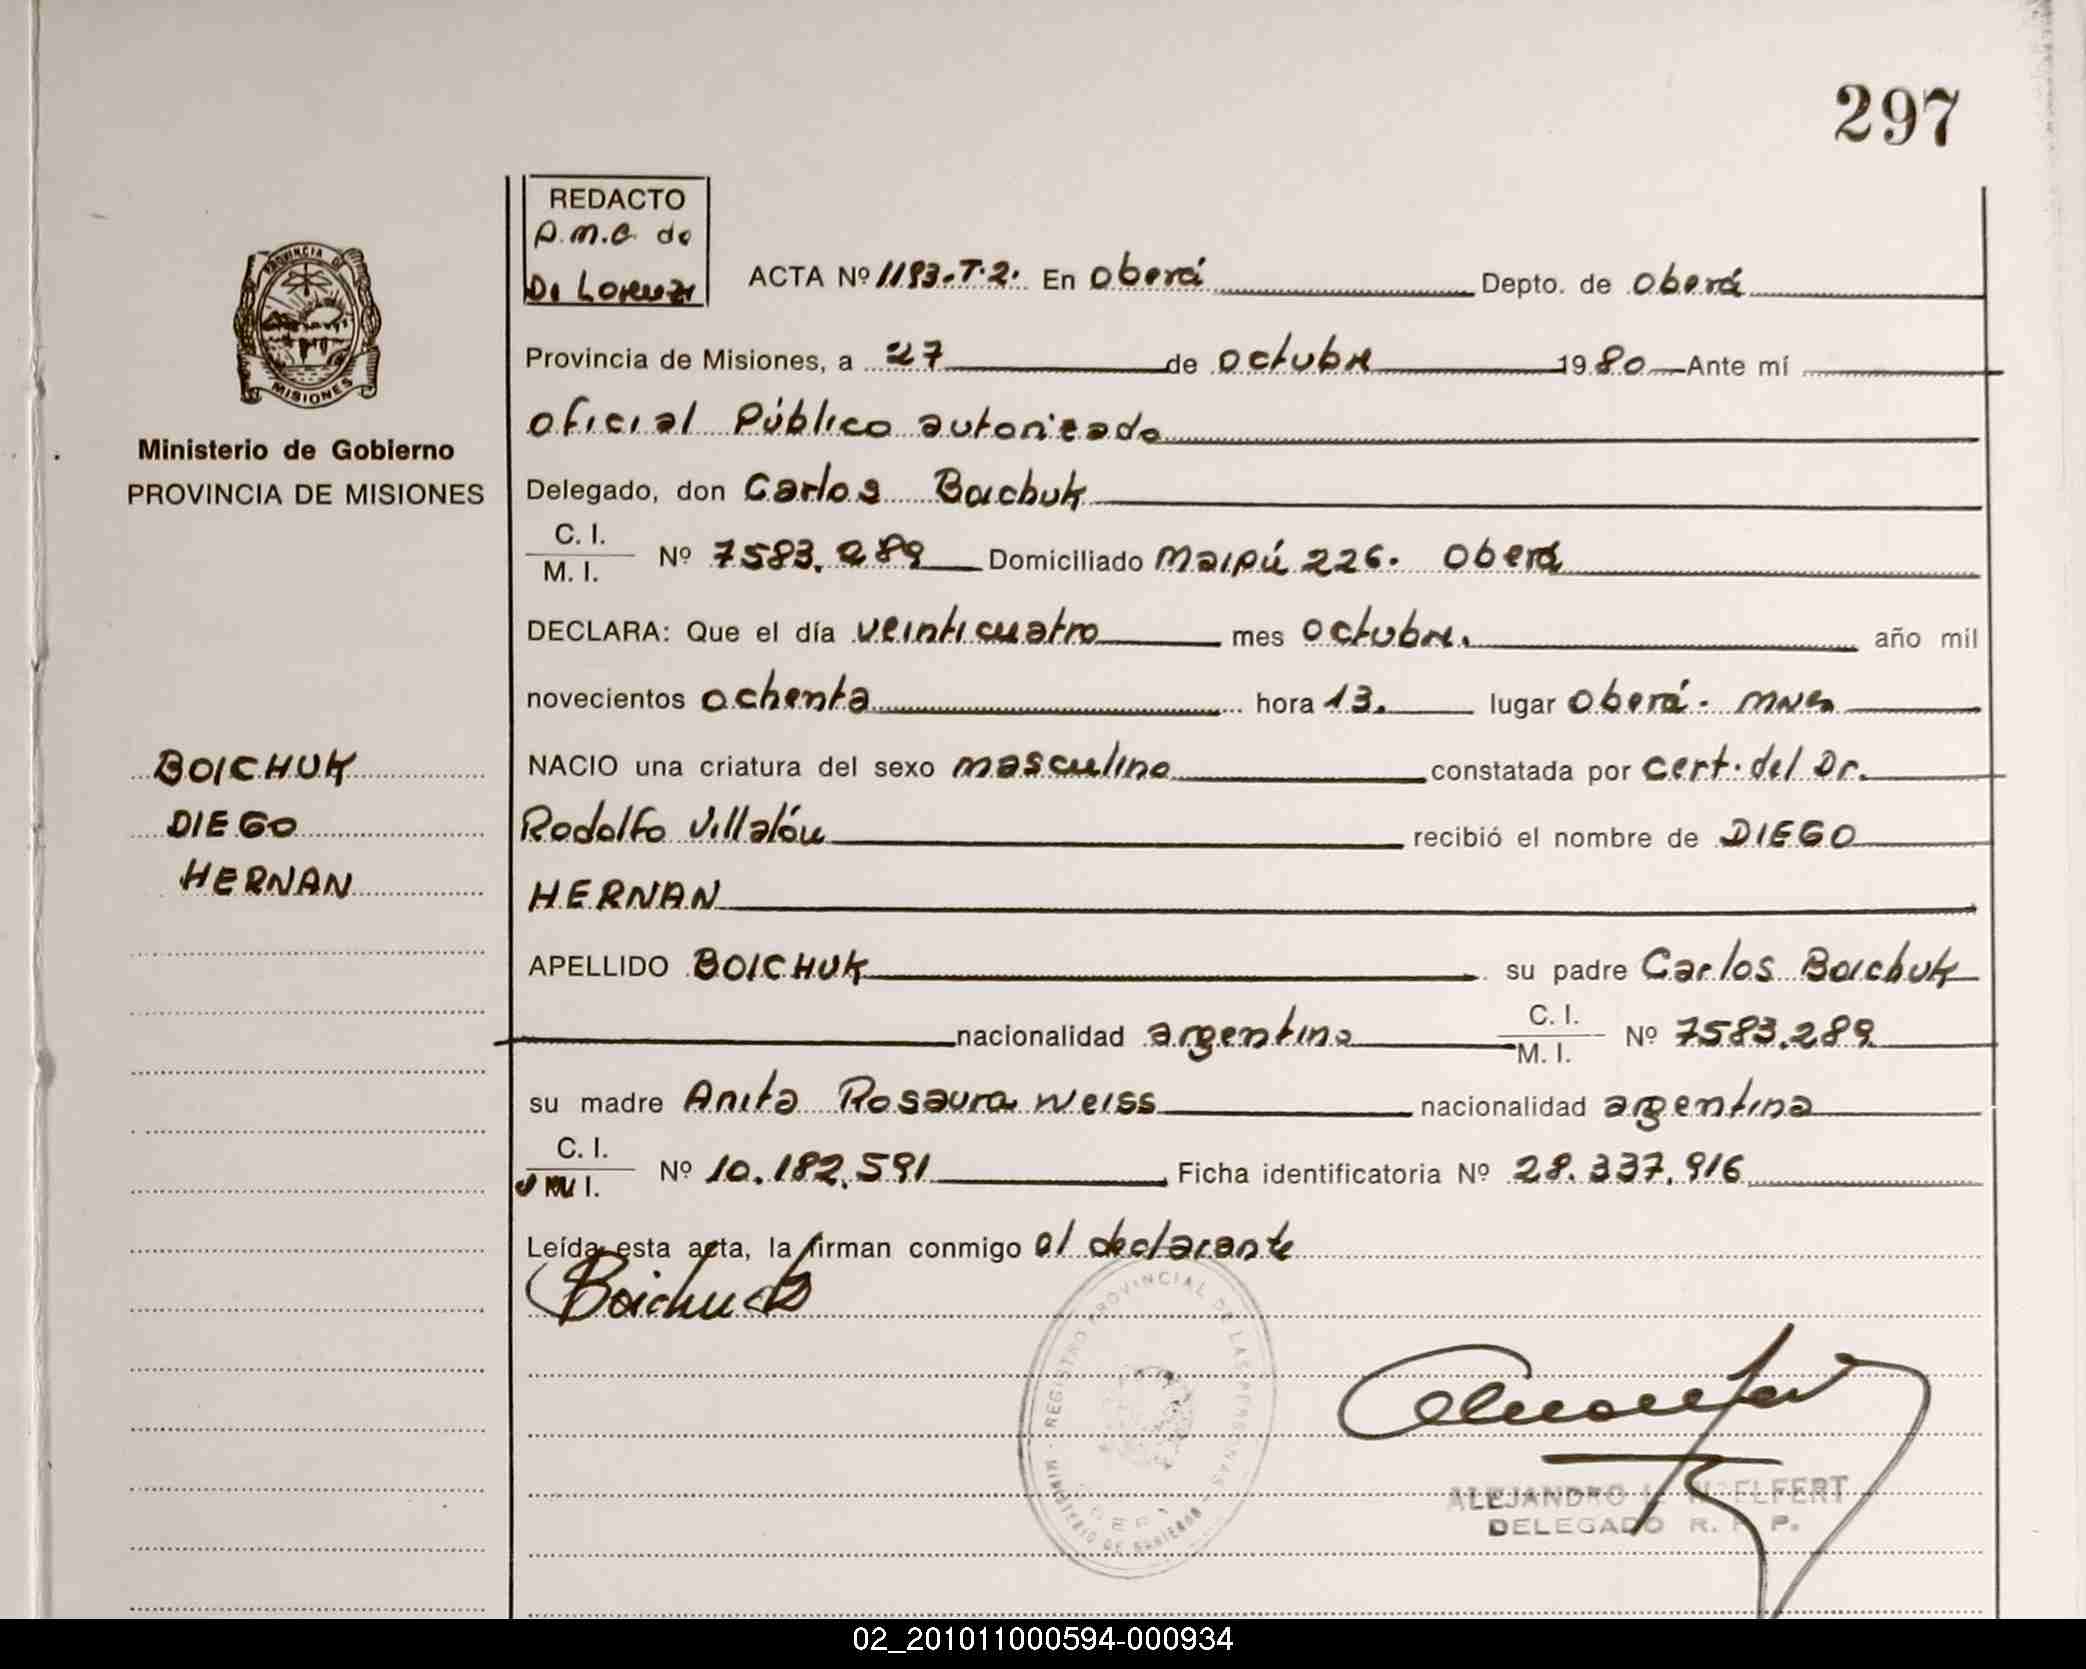 297
REDACTO
A.M.C. de
Di Lorenzi
ACTA Nº 1193.T.2. En Oberá Depto. de Oberá
PROVINCIA DE
MISIONES
Provincia de Misiones, a 27 de octubre 1980 Ante mí
oficial Público autorizado
Ministerio de Gobierno
PROVINCIA DE MISIONES
Delegado, don Carlos Boichuk
C. I.
M. I. Nº 7583.289 Domiciliado Maipú 226. Oberá
DECLARA: Que el día veinticuatro mes octubre. año mil
novecientos ochenta hora 13. lugar Oberá - Mnes
BOICHUK
DIEGO
HERNAN
NACIO una criatura del sexo masculino constatada por cert. del Dr.
Rodolfo Villalón recibió el nombre de DIEGO
HERNAN
APELLIDO BOICHUK su padre Carlos Boichuk
nacionalidad argentina C. I.
M. I. Nº 7583.289
su madre Anita Rosaura Weiss nacionalidad argentina
C. I.
M. I. Nº 10.182.591 Ficha identificatoria Nº 28.337.916
Leída esta acta, la firman conmigo el declarante
Boichuk
REGISTRO PROVINCIAL DE LAS PERSONAS
MINISTERIO DE GOBIERNO
ALEJANDRO
DELEGADO R. P. P.
02_201011000594-000934